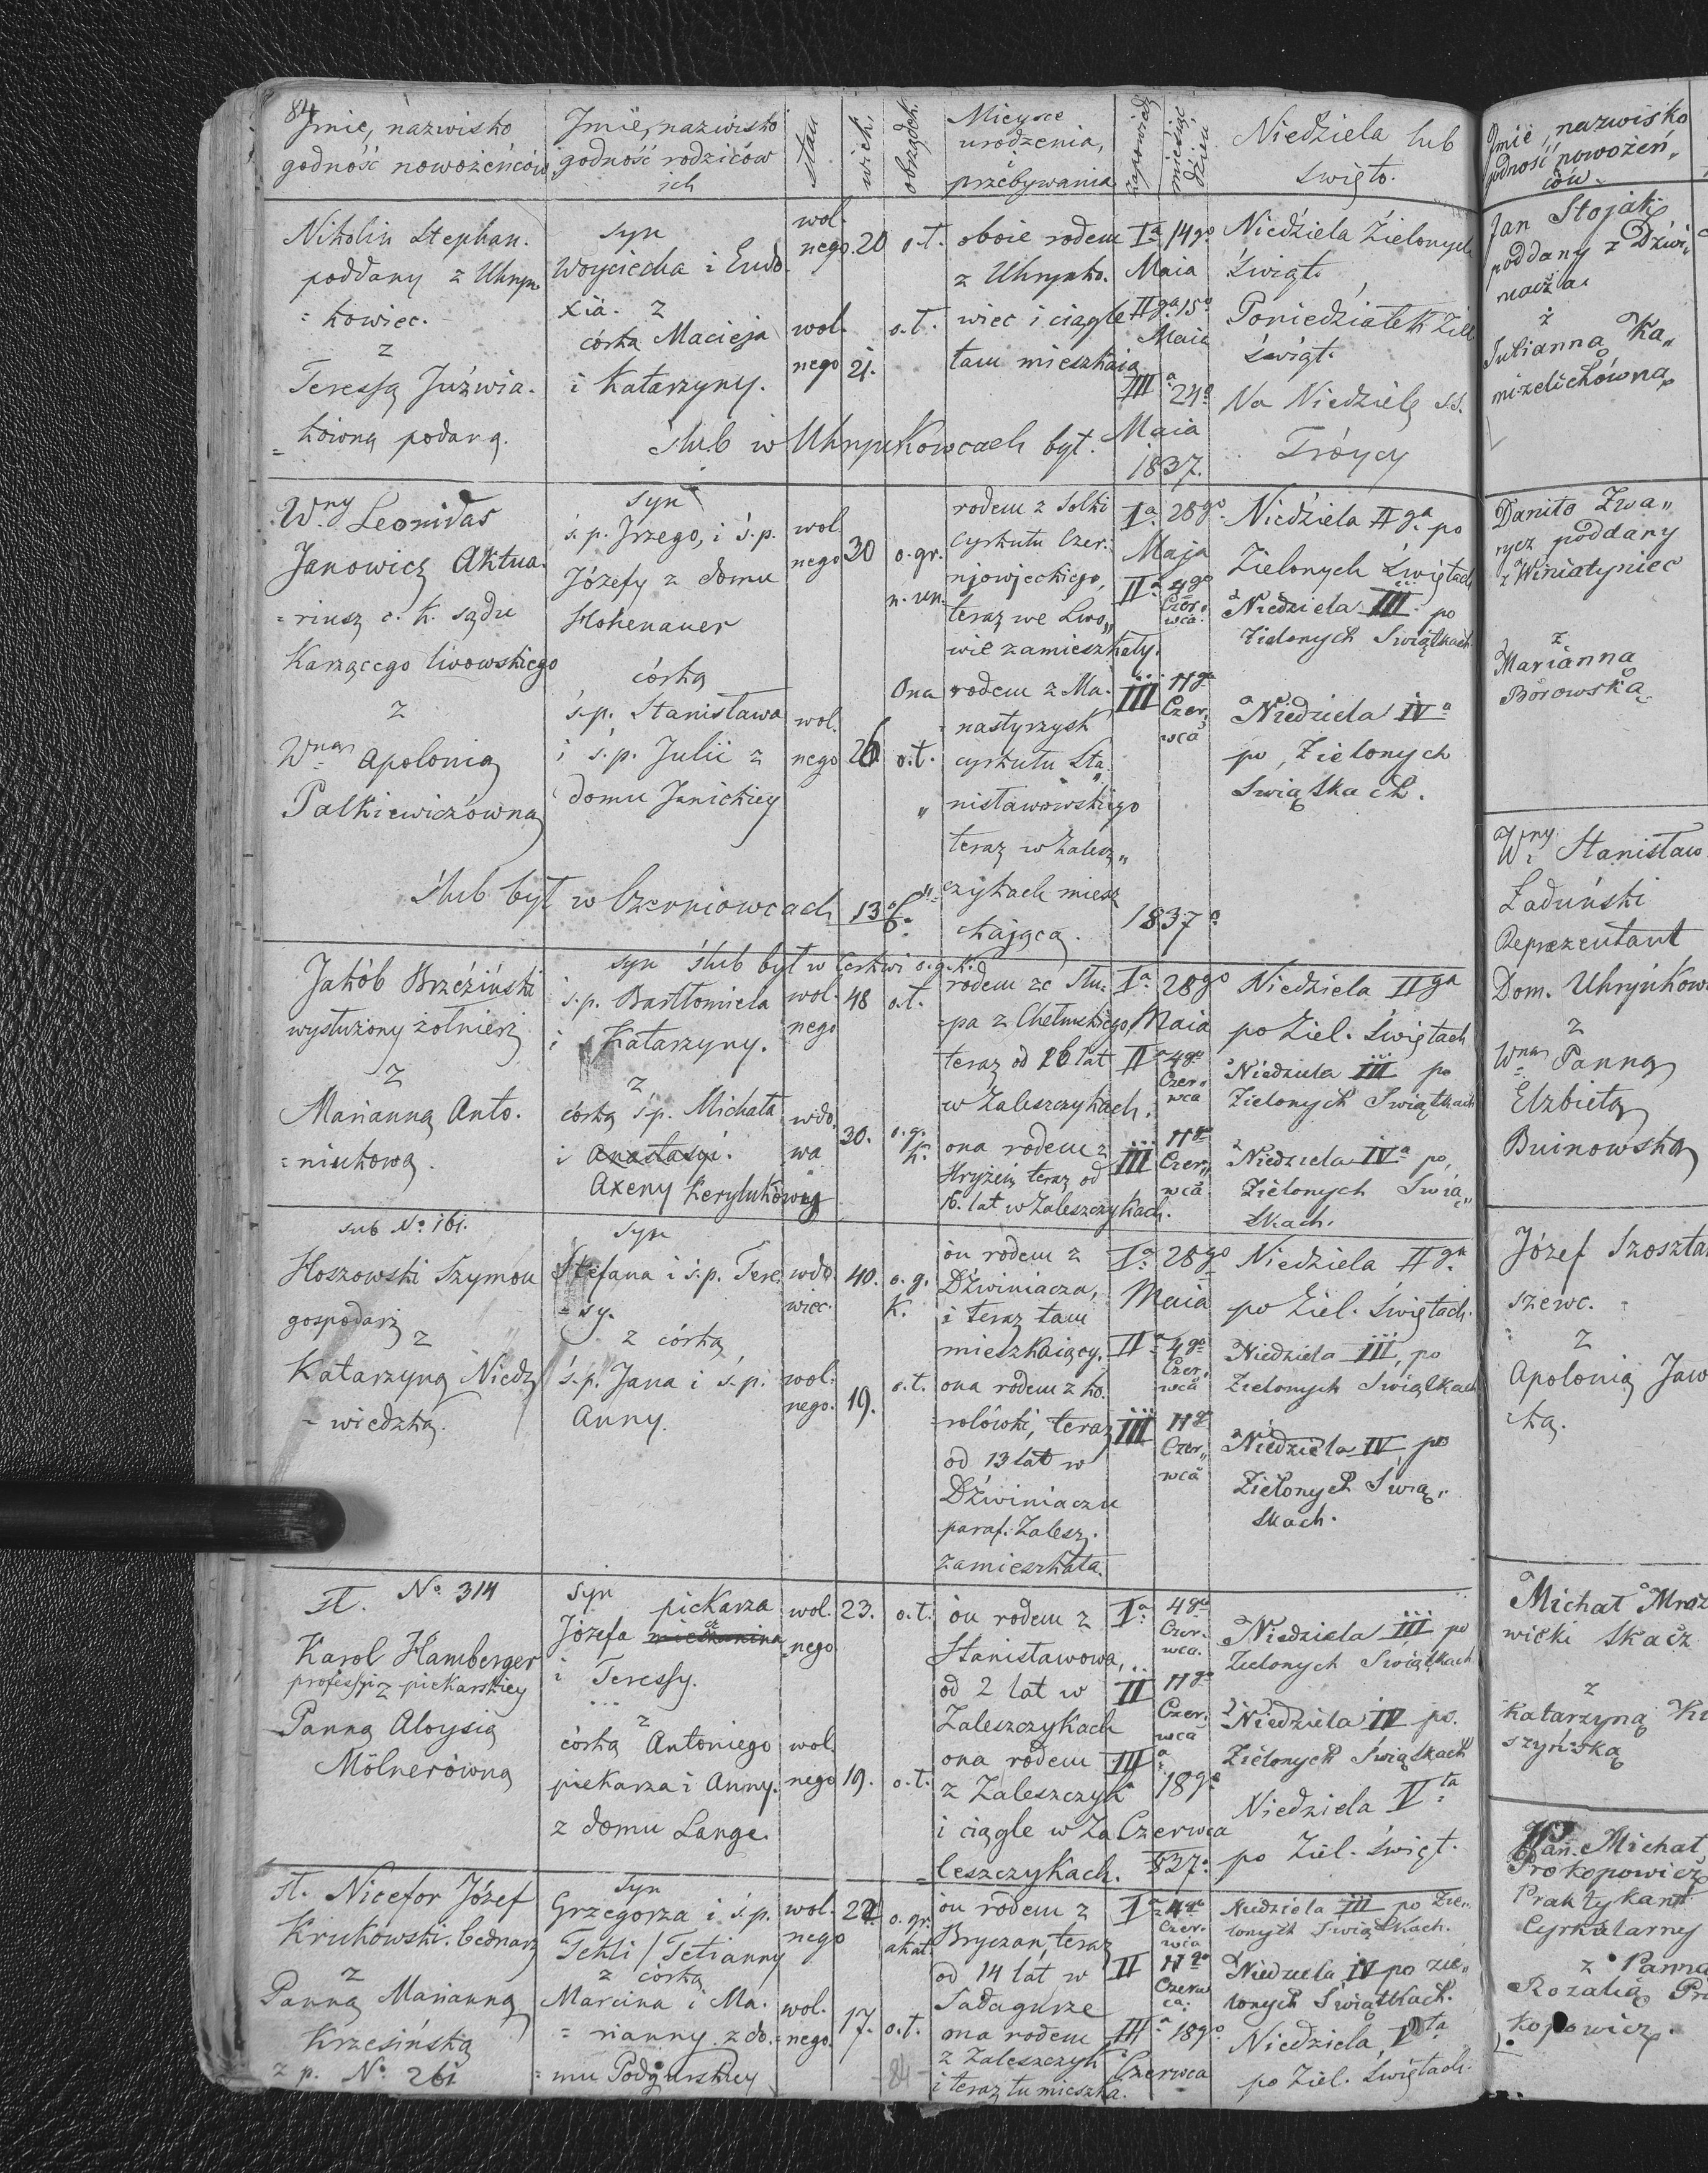 84
Jmie, nazwisko
godność nowożeńców
Jmie, nazwisko
godność rodziców
ich
stan
wiek
obrządek
Mieysce
urodzenia,
i
przebywania
zapowiedź
miesiąc
dzień
Niedziela lub
święto.
Nikolin Stephan.
poddany z Uhryn
= kowiec.
z
Teressą Juźwia.
= kówną podaną.
syn
Woyciecha i Eudo.
xia. z
córką Macieja
i Katarzyny.
wol.
nego.
20
o.t.
wol.
nego
21.
o.t.
oboie rodem
z Uhrynko.
wiec i ciągle
tam mieszkaią
Iª 14go
Maia
IIga 15o
Maia
IIIª 24o
Maia
1837.
Niedziela Zielonych
Świąt.
Poniedziałek Ziel
Świąt.
Na Niedzielę SS.
Tróycy
ślub w Uhrynkowcach był.
Wny Leonidas
Janowicz Aktua.
= riusz c. k. sądu
Karzącego lwowskiego
z
Wną Apolonią
Palkiewiczówną
syn
ś.p. Jrzego, i ś.p.
Józefy z domu
Hohenauer
córką
ś.p. Stanisława
i ś.p. Julii z
domu Janickiey
wol
nego
30
o. gr.
n. un.
wol.
nego
26
o.t.
rodem z Solki
Cyrkułu Czer.
niowieckiego,
teraz we Lwo„
wie zamieszkały.
Ona rodem z Ma.
nastyrzysk
cyrkułu Sta„
„ nisławowskiego
teraz w Zalesz„
czykach miesz
kająca.
Iª 28go
Maja
IIª 4go
Czer.
wca.
III 11go
Czer.
wca
1837o
Niedziela IIga po
Zielonych Świętach
Niedziela III po
Zielonych Swiątkach
Niedziela IVª
po Zielonych
Swiąskach.
Ślub był w Czerniowcach 13o/6.
Jakób Brzeziński
wysłużony żołnierz
z
Marianną Anto.
= niukową.
syn ślub był w Cerkwi o.g.k.
ś.p. Bartłomieia
i Katarzyny.
z
córką ś.p. Michała
i Anastasyi.
Axeny Kerylukówny
wol.
nego
48
o.t.
wdo.
wa
30.
o. g.
k.
rodem ze Słu.
=pa z Chełmskiego,
teraz od 26 lat
w Zaleszczykach.
ona rodem z
Hryżeiz teraz od
15. lat w Zaleszczykach.
Iª 28go
Maia
IIª 4go
Czer.
wca
III 11go
Czer„
wca
Niedziela IIga
po Ziel. Świętach
Niedziela III po
Zielonych Swiątkach
Niedziela IVª po,
Zielonych Swią„
skach.
sub No 161.
Hoszowski Szymon
gospodarz
z
Katarzyną Niedz
= wiedzką.
syn
Stefana i ś.p. Tere.
= sy.
z córką
ś.p. Jana i ś.p.
Anny.
wdo.
wiec.
40.
o. g.
K.
wol.
nego.
19.
o.t.
ón rodem z
Dźwiniacza,
i teraz tam
mieszkaiący.
ona rodem z Ko.
=rolówki, teraz
od 13 lat w
Dźwiniaczu
paraf. Zalesz.
zamieszkała.
Iª 28go
Maia
IIª 4go
Czer.
wca
III 11go
Czer„
wca
Niedziela IIga
po Ziel. Świętach.
Niedziela III, po
Zielonych Swiątkach
Niedziela IV po
Zielonych Swią„
skach.
st. No 314
Karol Hamberger
professyi piekarskiey
z
Panną Aloysią
Mölnerówną
syn piekarza
Józefa mieszczanina
i Teressy.
z
córką Antoniego
piekarza i Anny.
z domu Lange.
wol.
nego
23.
o.t.
wol.
nego
19.
o.t.
ón rodem z
Stanisławowa,
od 2 lat w
Zaleszczykach
ona rodem
z Zaleszczyk
i ciągle w Za
=leszczykach.
Iª 4go
Czer.
wca.
II 11go
Czer.
wca
IIIª
18go
Czerwca
837.
Niedziela III po
Zielonych Swiątkach
Niedziela IV po.
Zielonych Swiąskach
Niedziela Vta
po Ziel. Świąt.
st. Nicefor Józef
Krukowski. bednarz
z
Panną Marianną
Krzesińską
z p. No 261
syn
Grzegorza i ś.p.
Tekli / Tetianny
z córką
Marcina i Ma.
= rianny. z do.
= mu Podgurskiey
wol.
nego
22
o. gr.
akat.
wol.
=nego.
17.
o.t.
ón rodem z
Bryczan, teraz
od 14 lat, w
Sadagurze
ona rodem
z Zaleszczyk
i teraz tu mieszka.
Iª 4go
Czer.
wca
II 11go
Czerw
ca.
IIIª 18go
Czerwca
Niedziela III po Zie„
lonych Swiąskach.
Niedziela IV po zie„
lonych Swiątkach.
Niedziela, Vta
po Ziel. Świętach.
-84-
Jmie, nazwisko
godność nowożeń„
ców.
Jan Stojak
poddany z Dźwi„
niacza.
z
Julianną Ka„
mizelichówną
Daniło Zwa„
rycz poddany
z Winiatyniec
z
Marianną
Borowską
Wny Stanisław
Ładuński
Reprezentant
Dom. Uhrynkow
z
Wną Panną
Elzbietą
Buinowską
Józef Szoszta
szewc.
z
Apolonią Jaw
ką.
Michał Mroz
wicki tkacz
z
Katarzyną
szyńską
Pan Michał
Prokopowicz
Praktykant
Cyrkularny
z Panną
Rozalią Pro
kopowicz.